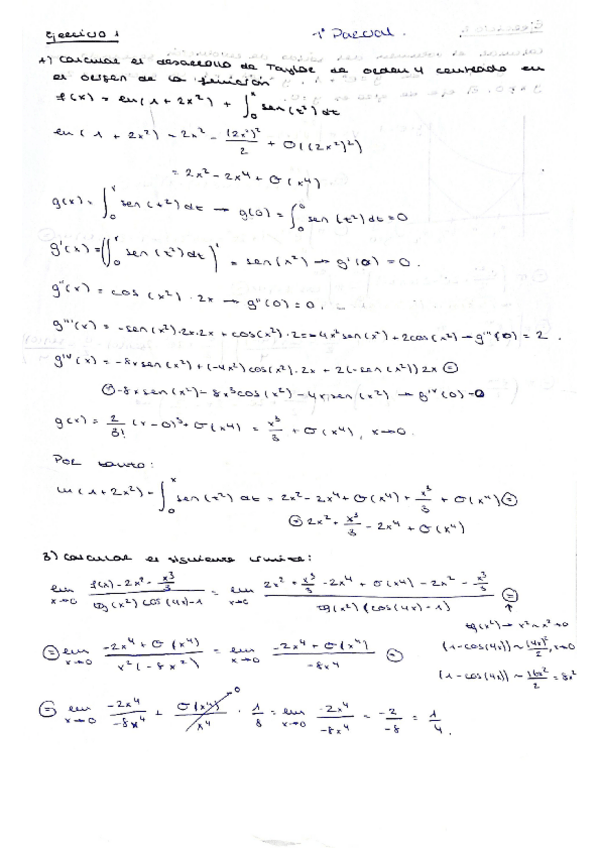 Ejercicio 1
1º Parcial.
A) Calcular el desarrollo de Taylor de orden 4 centrado en
el origen de la función
f(x) = ln(1+2x²) + ∫₀ˣ sen(t²)dt
ln(1+2x²) ~ 2x² - (2x²)²/2 + O((2x²)²)
= 2x² - 2x⁴ + O(x⁴)
g(x) = ∫₀ˣ sen(t²)dt → g(0) = ∫₀⁰ sen(t²)dt = 0
g'(x) = (∫₀ˣ sen(t²)dt)' = sen(x²) → g'(0) = 0.
g''(x) = cos(x²)·2x → g''(0) = 0.
g'''(x) = -sen(x²)·2x·2x + cos(x²)·2 = -4x²sen(x²) + 2cos(x²) → g'''(0) = 2.
g'ᵛ(x) = -8xsen(x²) + (-4x²)cos(x²)·2x + 2(-sen(x²))2x =
= -8xsen(x²) - 8x³cos(x²) - 4xsen(x²) → g'ᵛ(0) = 0
g(x) = 2/3! (x-0)³ + O(x⁴) = x³/3 + O(x⁴), x→0.
Por tanto:
ln(1+2x²) - ∫₀ˣ sen(t²)dt = 2x² - 2x⁴ + O(x⁴) + x³/3 + O(x⁴) =
= 2x² + x³/3 - 2x⁴ + O(x⁴)
B) Calcular el siguiente límite:
lim x→0 (f(x) - 2x² - x³/3)/(tg(x²)cos(4x)-1) = lim x→0 (2x² + x³/3 - 2x⁴ + O(x⁴) - 2x² - x³/3)/(tg(x²)(cos(4x)-1)) =
tg(x²) → x² ~ x² →0
= lim x→0 (-2x⁴ + O(x⁴))/(x²(-8x²)) = lim x→0 (-2x⁴ + O(x⁴))/(-8x⁴) =
(1-cos(4x)) ~ (4x)²/2, x→0
(1-cos(4x)) ~ 16x²/2 = 8x²
= lim x→0 -2x⁴/-8x⁴ + O(x⁴)/x⁴ →0 · 1/8 = lim x→0 -2x⁴/-8x⁴ = -2/-8 = 1/4.